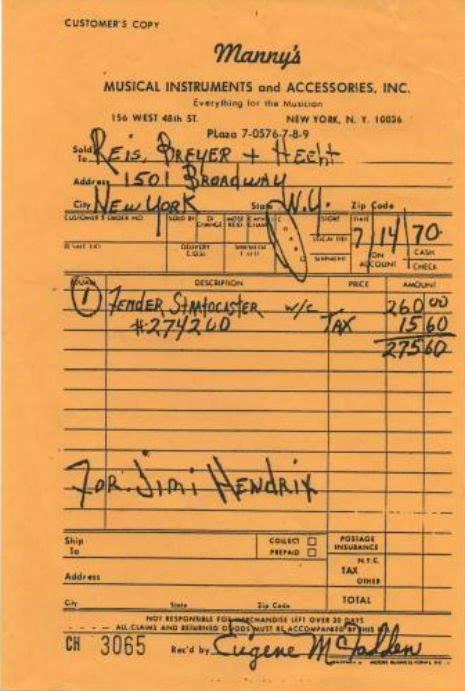 CUSTOMER'S COPY
Manny's
MUSICAL INSTRUMENTS and ACCESSORIES, INC.
Everything for the Musician
156 WEST 48th ST. NEW YORK, N. Y. 10036
PLaza 7-0576-7-8-9
Sold To REIS, BREYER + HECHT
Address 1501 BROADWAY
City NEW YORK State N.Y. Zip Code
CUSTOMER'S ORDER NO. SOLD BY DATE 7/14/70
ON ACCOUNT CASH CHECK
QUAN. DESCRIPTION PRICE AMOUNT
1 FENDER STRATOCASTER w/c 260 00
#274200 TAX 15 60
275 60
FOR JIMI HENDRIX
Ship To COLLECT PREPAID POSTAGE INSURANCE
Address TAX N.Y.C. OTHER
City State Zip Code TOTAL
NOT RESPONSIBLE FOR MERCHANDISE LEFT OVER 30 DAYS
ALL CLAIMS AND RETURNED GOODS MUST BE ACCOMPANIED BY THIS BILL
CH 3065 Rec'd by Eugene McFadden